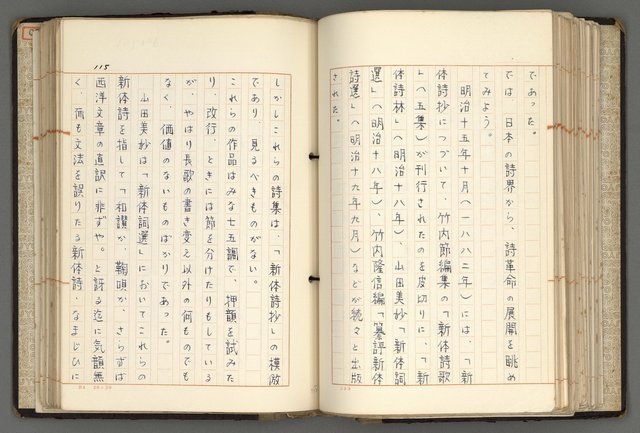 であった。
では、日本の詩界から、詩革命の展開を眺め
てみよう。
明治十五年十月(一八八二年)には、「新
体詩抄」につづいて、竹内節編集の「新体詩歌
」(五集)が刊行されたのを皮切りに、「新
体詩林」(明治十八年)、山田美妙「新体詞
選」(明治十八年)、竹内隆信編「纂評新体
詩選」(明治十九年九月)などが続々と出版
された。
しかしこれらの詩集は、「新体詩抄」の模倣
であり、見るべきものがない。
これらの作品はみな七五調で、押韻を試みた
り、改行、ときには節を分けたりもしている
が、やはり長歌の書き変え以外の何ものでも
なく、価値のないものばかりであった。
山田美妙は「新体詞選」においてこれらの
新体詩を指して「和讃か、鞠唄か、さらずば
西洋文章の直訳に非ずや。と訝る迄に気韻無
く、而も文法を誤りたる新体詩、なまじひに
115